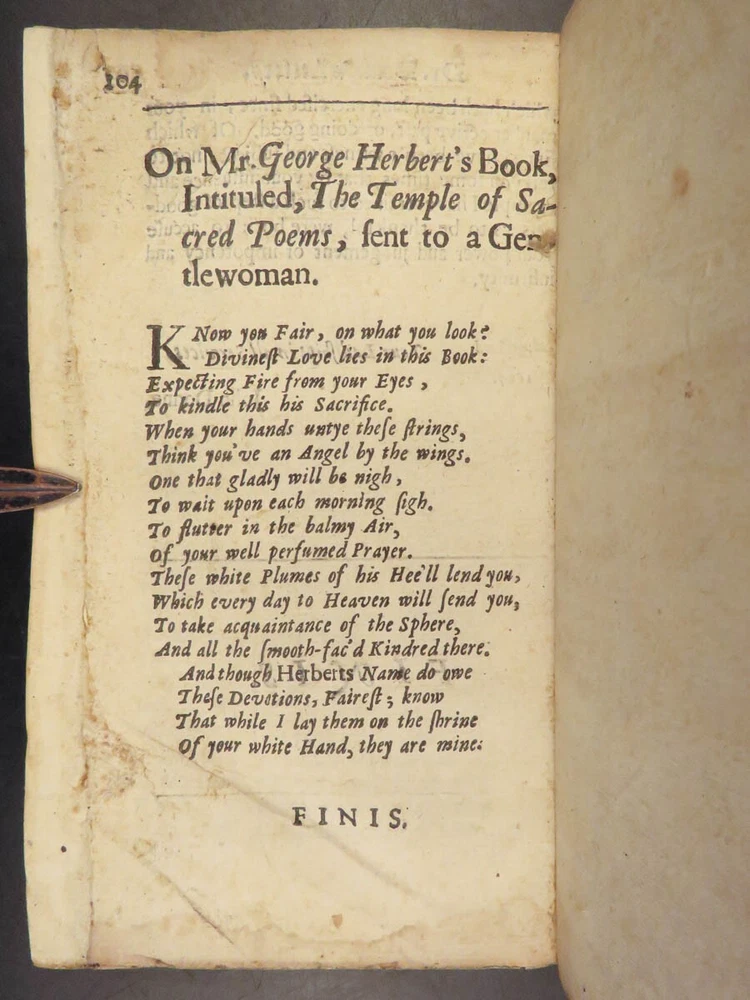 104
On Mr. George Herbert's Book,
Intituled, The Temple of Sa-
cred Poems, ſent to a Gen-
tlewoman.
KNow you Fair, on what you look?
Divineſt Love lies in this Book:
Expecting Fire from your Eyes,
To kindle this his Sacrifice.
When your hands untye theſe ſtrings,
Think you've an Angel by the wings.
One that gladly will be nigh,
To wait upon each morning ſigh.
To flutter in the balmy Air,
Of your well perfumed Prayer.
Theſe white Plumes of his Hee'll lend you,
Which every day to Heaven will ſend you,
To take acquaintance of the Sphere,
And all the ſmooth-fac'd Kindred there.
And though Herberts Name do owe
Theſe Devotions, Faireſt; know
That while I lay them on the ſhrine
Of your white Hand, they are mine.
FINIS.